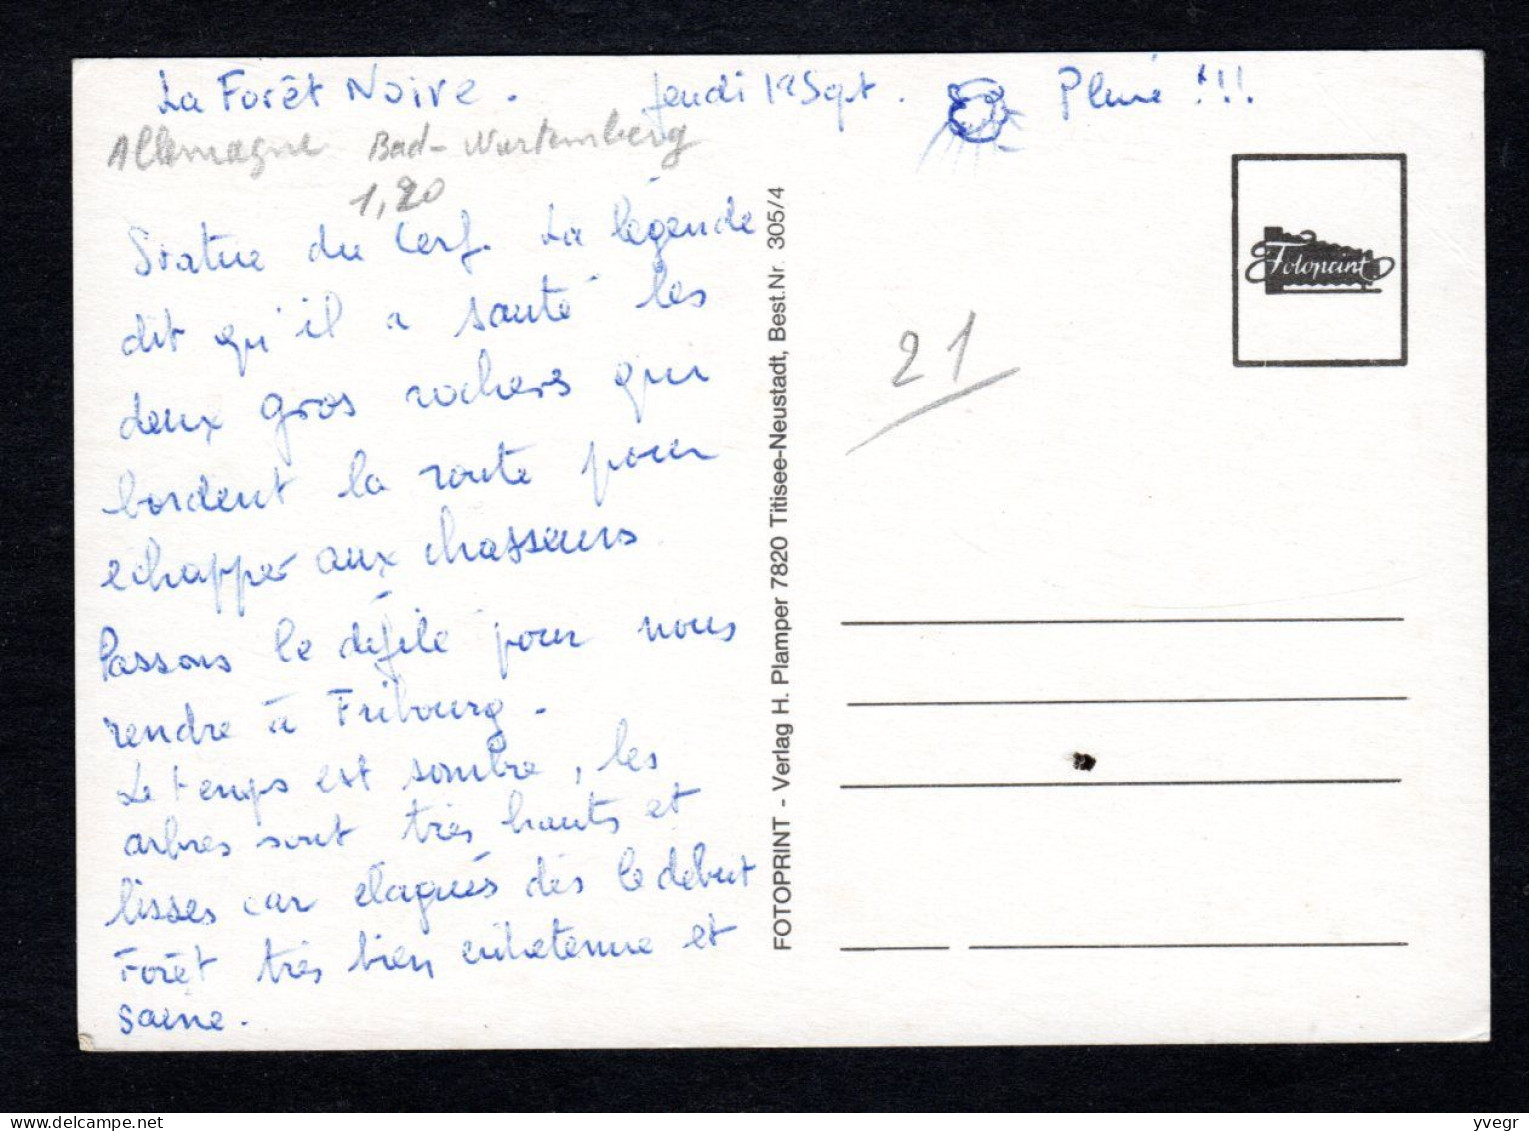 La Forêt Noire. Jeudi 12 Sept. Pluie !!!
Allemagne Bad-Wurtemberg
1,20
Statue du Cerf. La légende
dit qu'il a sauté les
deux gros rochers qui
bordent la route pour
echapper aux chasseurs.
Passons le défilé pour nous
rendre à Fribourg.
Le temps est sombre, les
arbres sont très hauts et
lisses car élagués dès le début
Forêt très bien entretenue et
saine.
FOTOPRINT - Verlag H. Plamper 7820 Titisee-Neustadt, Best.Nr. 305/4
Fotoprint
21
yvegr